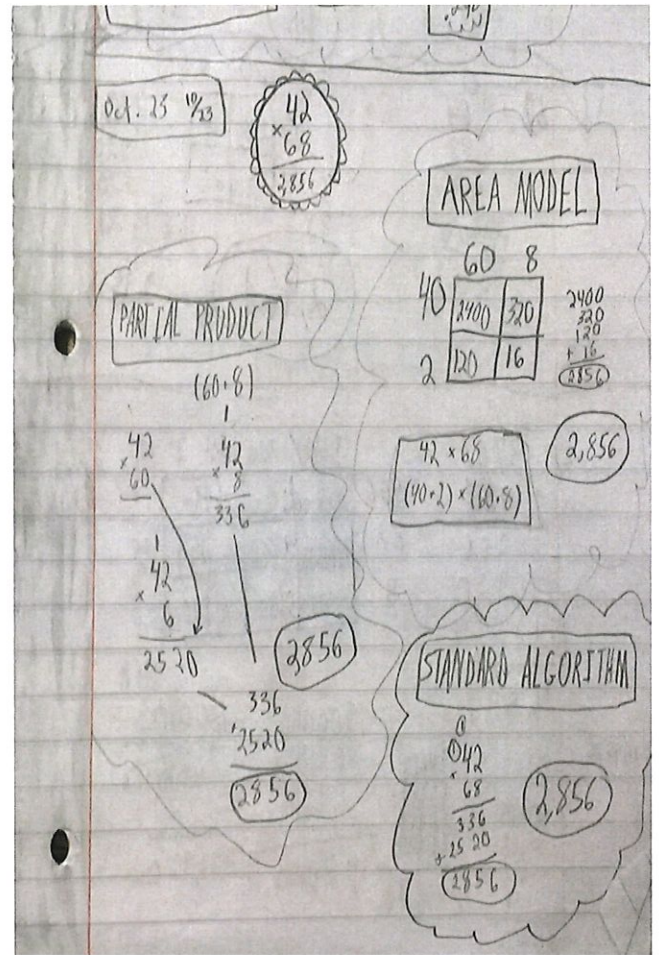 Oct. 23 10/23
42
×68
2,856
AREA MODEL
60 8
40 2400 320
2 120 16
2400
320
120
+ 16
2856
42 × 68
(40+2) × (60+8)
2,856
PARTIAL PRODUCT
(60+8)
42
×60
1
42
× 8
336
1
42
× 6
2520
2856
336
+2520
2856
STANDARD ALGORITHM
1
1 42
× 68
336
+ 2520
2856
2,856